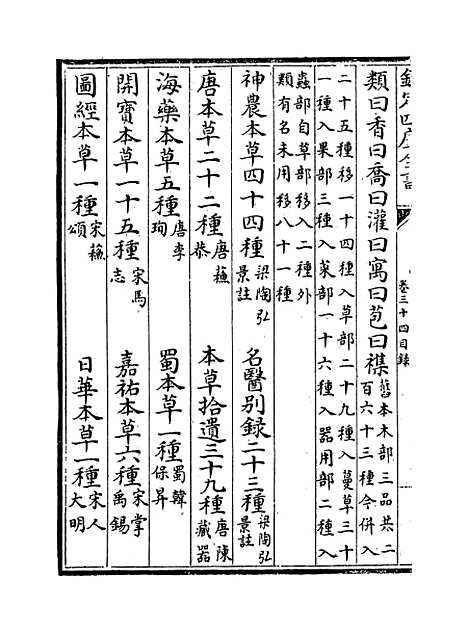 欽定四庫全書
卷三十四目錄
類曰香曰喬曰灌曰寓曰苞曰襍舊本木部三品共二百六十三種今併入
二十五種移一十四種入草部二十九種入蔓草三十
一種入果部三種入菜部一十六種入器用部二種入
蟲部自草部移入二種外
類有名未用移八十一種
神農本草四十四種梁陶弘景註 名醫別録二十三種梁陶弘景註
唐本草二十二種唐蘇恭 本草拾遺三十九種唐陳藏器
海藥本草五種唐李珣 蜀本草一種蜀韓保昇
開寶本草一十五種宋馬志 嘉祐本草六種宋掌禹錫
圖經本草一種宋蘇頌 日華本草一種宋人大明